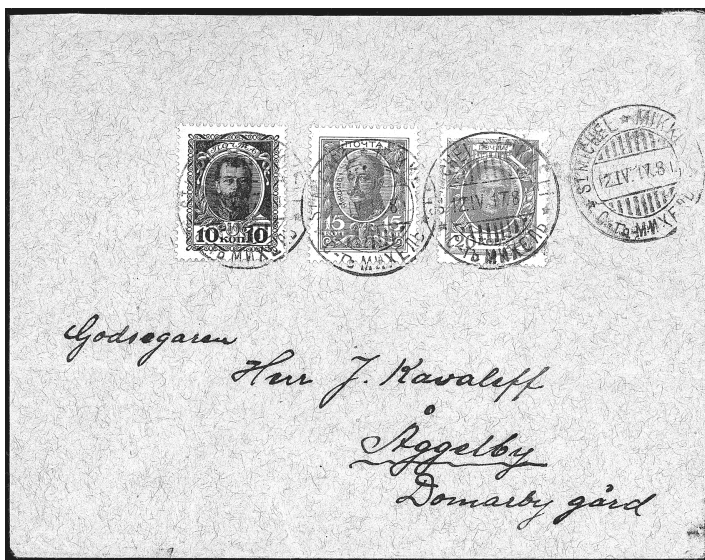 10 КОП 10
ПОЧТА
15 15
20
ST MICHEL * MIKK
12.IV.17.8
* С-ТЪ МИХЕЛЬ
Godsegaren
Herr J. Kavaleff
Åggelby
Domarby gård